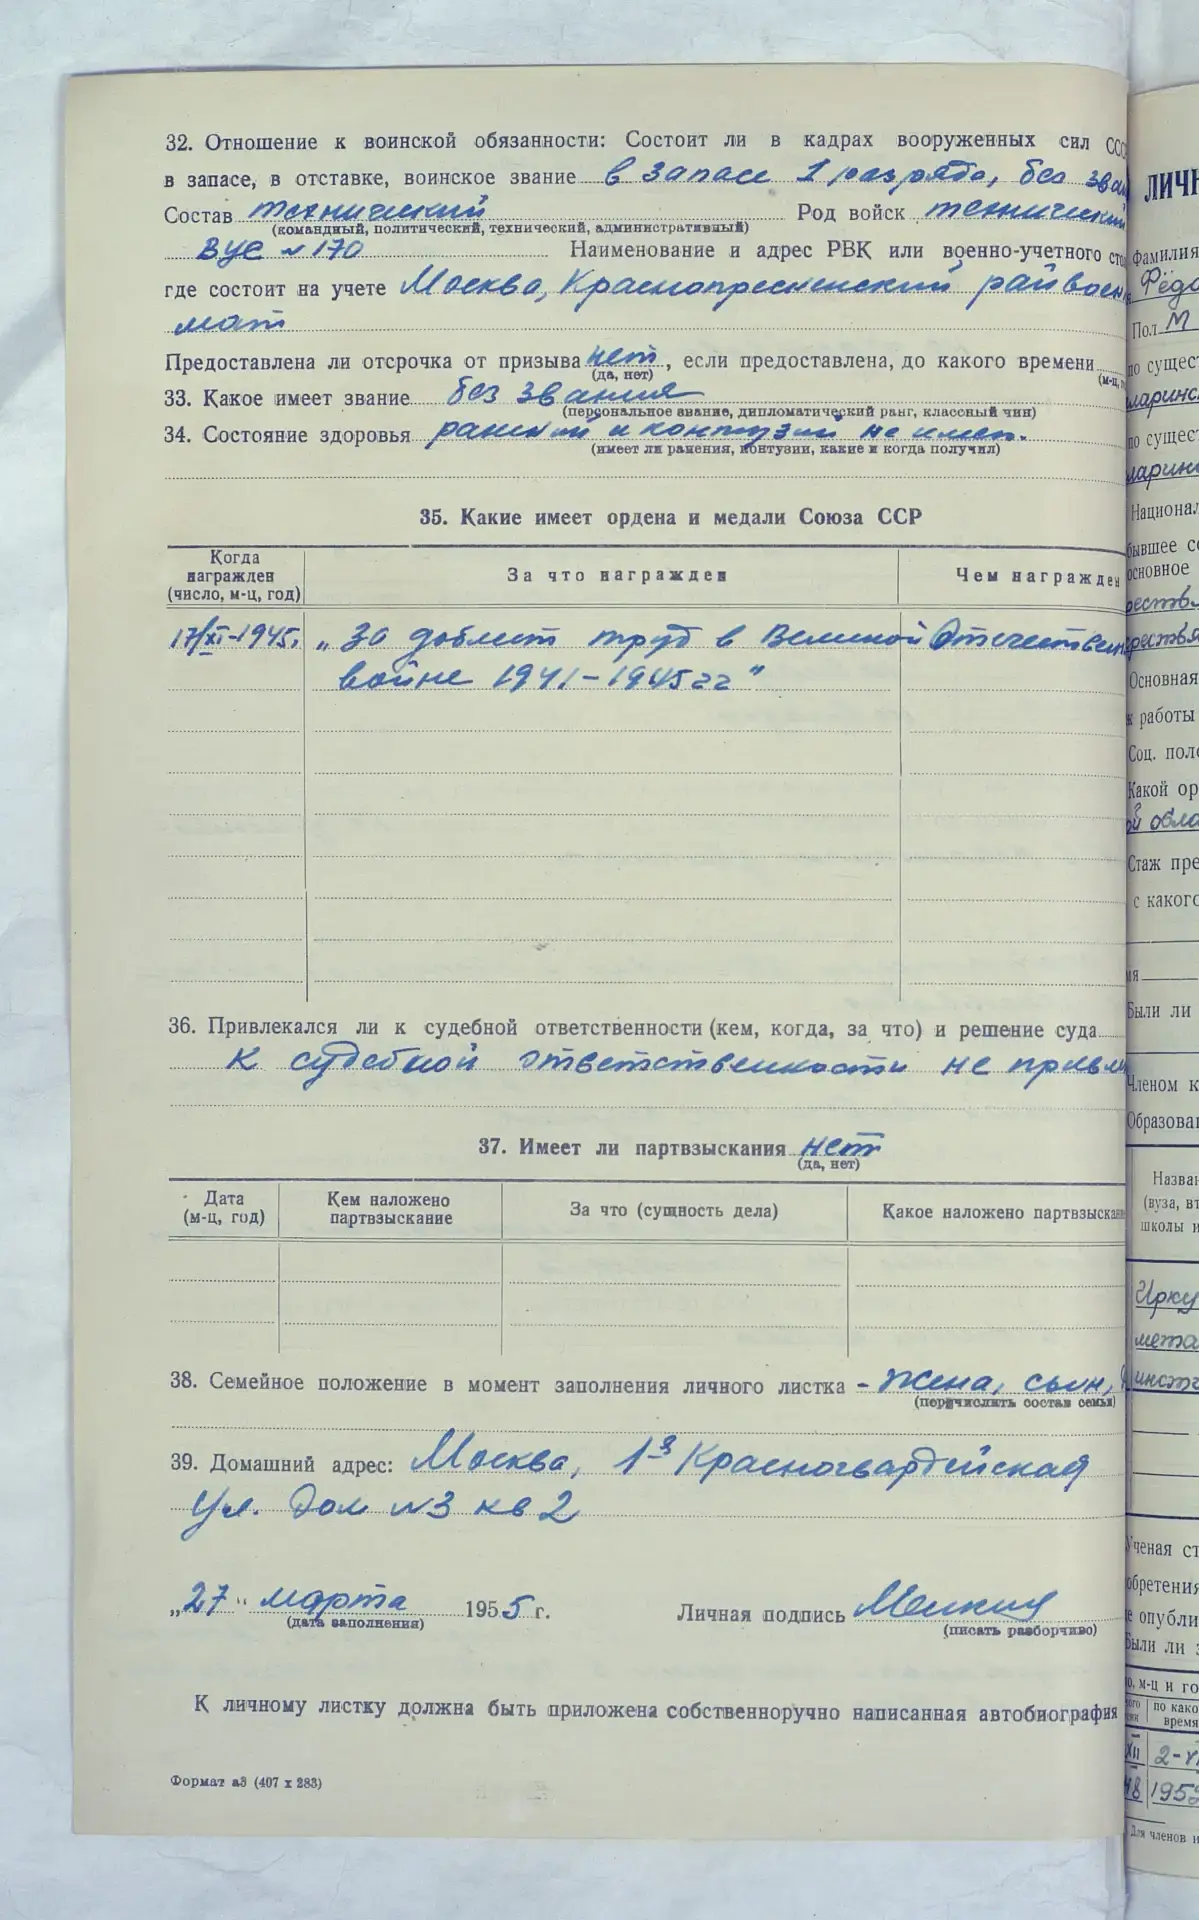 32. Отношение к воинской обязанности: Состоит ли в кадрах вооруженных сил ССС
в запасе, в отставке, воинское звание в запасе 1 разряда, без зван
Состав технический Род войск технический
(командный, политический, технический, административный)
ВУС №170 Наименование и адрес РВК или военно-учетного сто
где состоит на учете Москва, Краснопресненский райвоен
мат
Предоставлена ли отсрочка от призыва нет, если предоставлена, до какого времени
(да, нет) (м-ц, г
33. Какое имеет звание без звания
(персональное звание, дипломатический ранг, классный чин)
34. Состояние здоровья ранений и контузий не имею.
(имеет ли ранения, контузии, какие и когда получил)
35. Какие имеет ордена и медали Союза ССР
Когда награжден (число, м-ц, год) За что награжден Чем награжден
17/XI-1945г. „За доблест труд в Великой Отечествен
войне 1941-1945гг"
36. Привлекался ли к судебной ответственности (кем, когда, за что) и решение суда
К судебной ответственности не привл
37. Имеет ли партвзыскания нет
(да, нет)
Дата (м-ц, год) Кем наложено партвзыскание За что (сущность дела) Какое наложено партвзыскан
38. Семейное положение в момент заполнения личного листка - жена, сын,
(перечислить состав семьи)
39. Домашний адрес: Москва, 1-я Красногвардейская
ул. Дом №3 кв 2
„27" марта 1955 г. Личная подпись
(дата заполнения) (писать разборчиво)
К личному листку должна быть приложена собственноручно написанная автобиография
Формат а3 (407 х 283)
ЛИЧН
Фамилия
Фёдо
Пол М
по сущес
ларинс
по сущес
ларинс
Национал
бывшее со
основное
Основная
к работы
Соц. поло
Какой ор
ой обла
Стаж пре
с какого
ия
Были ли
Членом к
Образован
Назван
(вуза, вт
школы и
Ирку
мета
инсти
Ученая ст
обретения
е опубли
Были ли з
о, м-ц и го
по како
время
XII 2-VI
48 1952
Для членов и